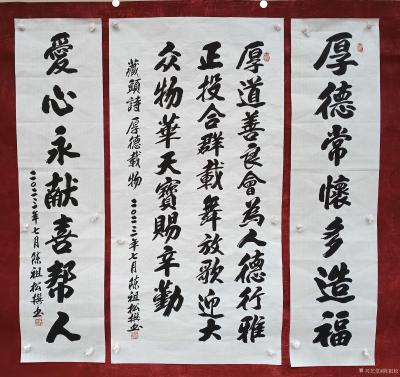 厚德常懷多造福
厚道善良會為人德行雅
正投合群載舞放歌迎大
众物華天寶賜辛勤
藏頭詩厚德載物
二〇二三年七月陈祖松撰书
愛心永献喜帮人
二〇二三年七月陈祖松撰书